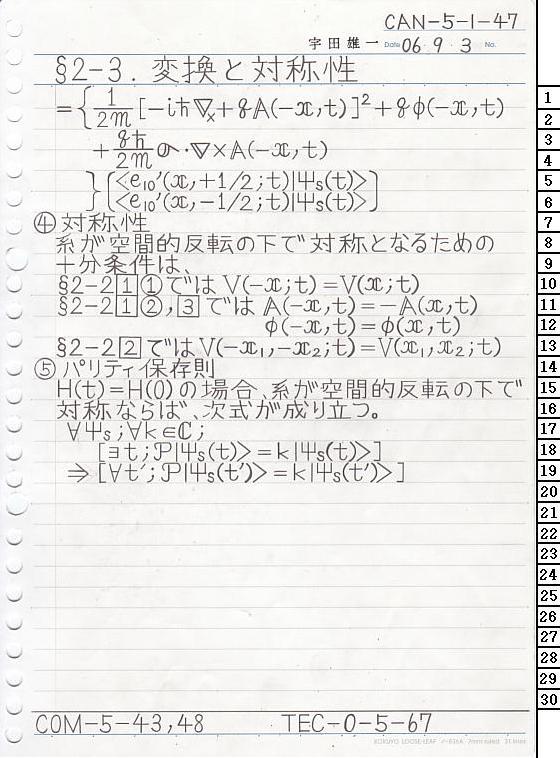 CAN-5-1-47
宇田雄一 Date 06 9 3 No.
§2-3. 変換と対称性
={1/2m [-iħ∇x+qA(-x,t)]²+qφ(-x,t)
+qħ/2m σ・∇×A(-x,t)
}[<e10'(x,+1/2;t)|Ψs(t)>
<e10'(x,-1/2;t)|Ψs(t)>]
④対称性
系が空間的反転の下で対称となるための
十分条件は、
§2-2 1 ①では V(-x;t)=V(x;t)
§2-2 1 ②, 3 では A(-x,t)=-A(x,t)
φ(-x,t)=φ(x,t)
§2-2 2 では V(-x₁,-x₂;t)=V(x₁,x₂;t)
⑤パリティ保存則
H(t)=H(0)の場合、系が空間的反転の下で
対称ならば、次式が成り立つ。
∀Ψs;∀k∈ℂ;
[∃t;P|Ψs(t)>=k|Ψs(t)>]
⇒[∀t′;P|Ψs(t′)>=k|Ψs(t′)>]
COM-5-43,48 TEC-0-5-67
KOKUYO LOOSE-LEAF ノ-836A 7mm ruled 31 lines
1
2
3
4
5
6
7
8
9
10
11
12
13
14
15
16
17
18
19
20
21
22
23
24
25
26
27
28
29
30